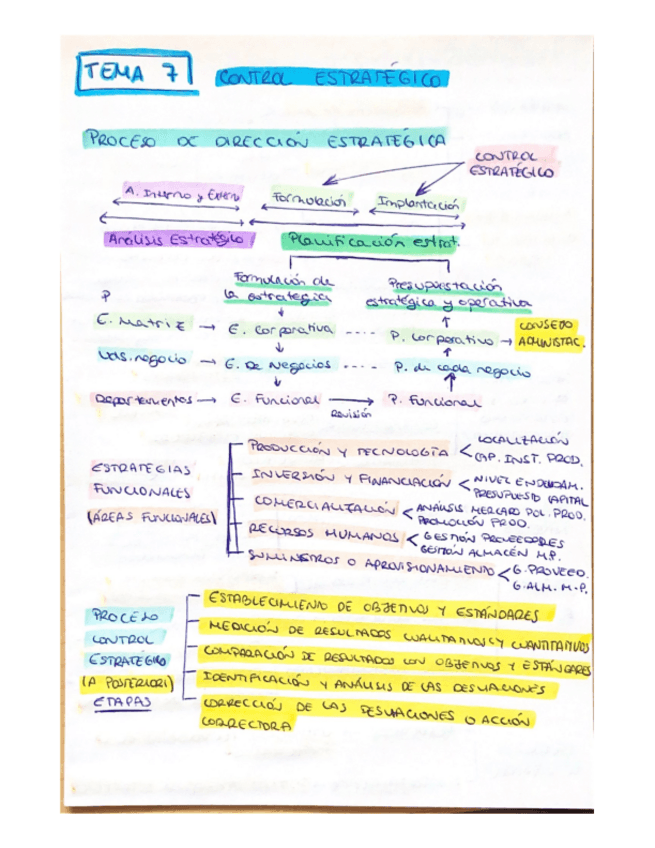 TEMA 7 CONTROL ESTRATÉGICO
PROCESO DE DIRECCIÓN ESTRATÉGICA
CONTROL
ESTRATÉGICO
A. Interno y Extern
Formulación
Implantación
Análisis Estratégico
Planificación estrat.
Formulación de
la estrategia
Presupuestación
estratégica y operativa
P
E. Matriz → E. Corporativa ---- P. Corporativo → CONSEJO
ADMINISTAC.
Uds. negocio → E. De Negocios ---- P. de cada negocio
Departamentos → E. Funcional → P. Funcional
Revisión
ESTRATEGIAS
FUNCIONALES
(ÁREAS FUNCIONALES)
PRODUCCIÓN Y TECNOLOGÍA < LOCALIZACIÓN
CAP. INST. PROD.
INVERSIÓN Y FINANCIACIÓN < NIVEL ENDEUDAM.
PRESUPUESTO CAPITAL
COMERCIALIZACIÓN < ANÁLISIS MERCADO POL. PROD.
PROMOCIÓN PROD.
RECURSOS HUMANOS < GESTIÓN PROVEEDORES
GESTIÓN ALMACÉN M.P.
SUMINISTROS O APROVISIONAMIENTO < G. PROVEED.
G. ALM. M.P.
PROCESO
CONTROL
ESTRATÉGICO
(A POSTERIORI)
ETAPAS
ESTABLECIMIENTO DE OBJETIVOS Y ESTÁNDARES
MEDICIÓN DE RESULTADOS CUALITATIVOS Y CUANTITATIVOS
COMPARACIÓN DE RESULTADOS CON OBJETIVOS Y ESTÁNDARES
IDENTIFICACIÓN Y ANÁLISIS DE LAS DESVIACIONES
CORRECCIÓN DE LAS DESVIACIONES O ACCIÓN
CORRECTORA